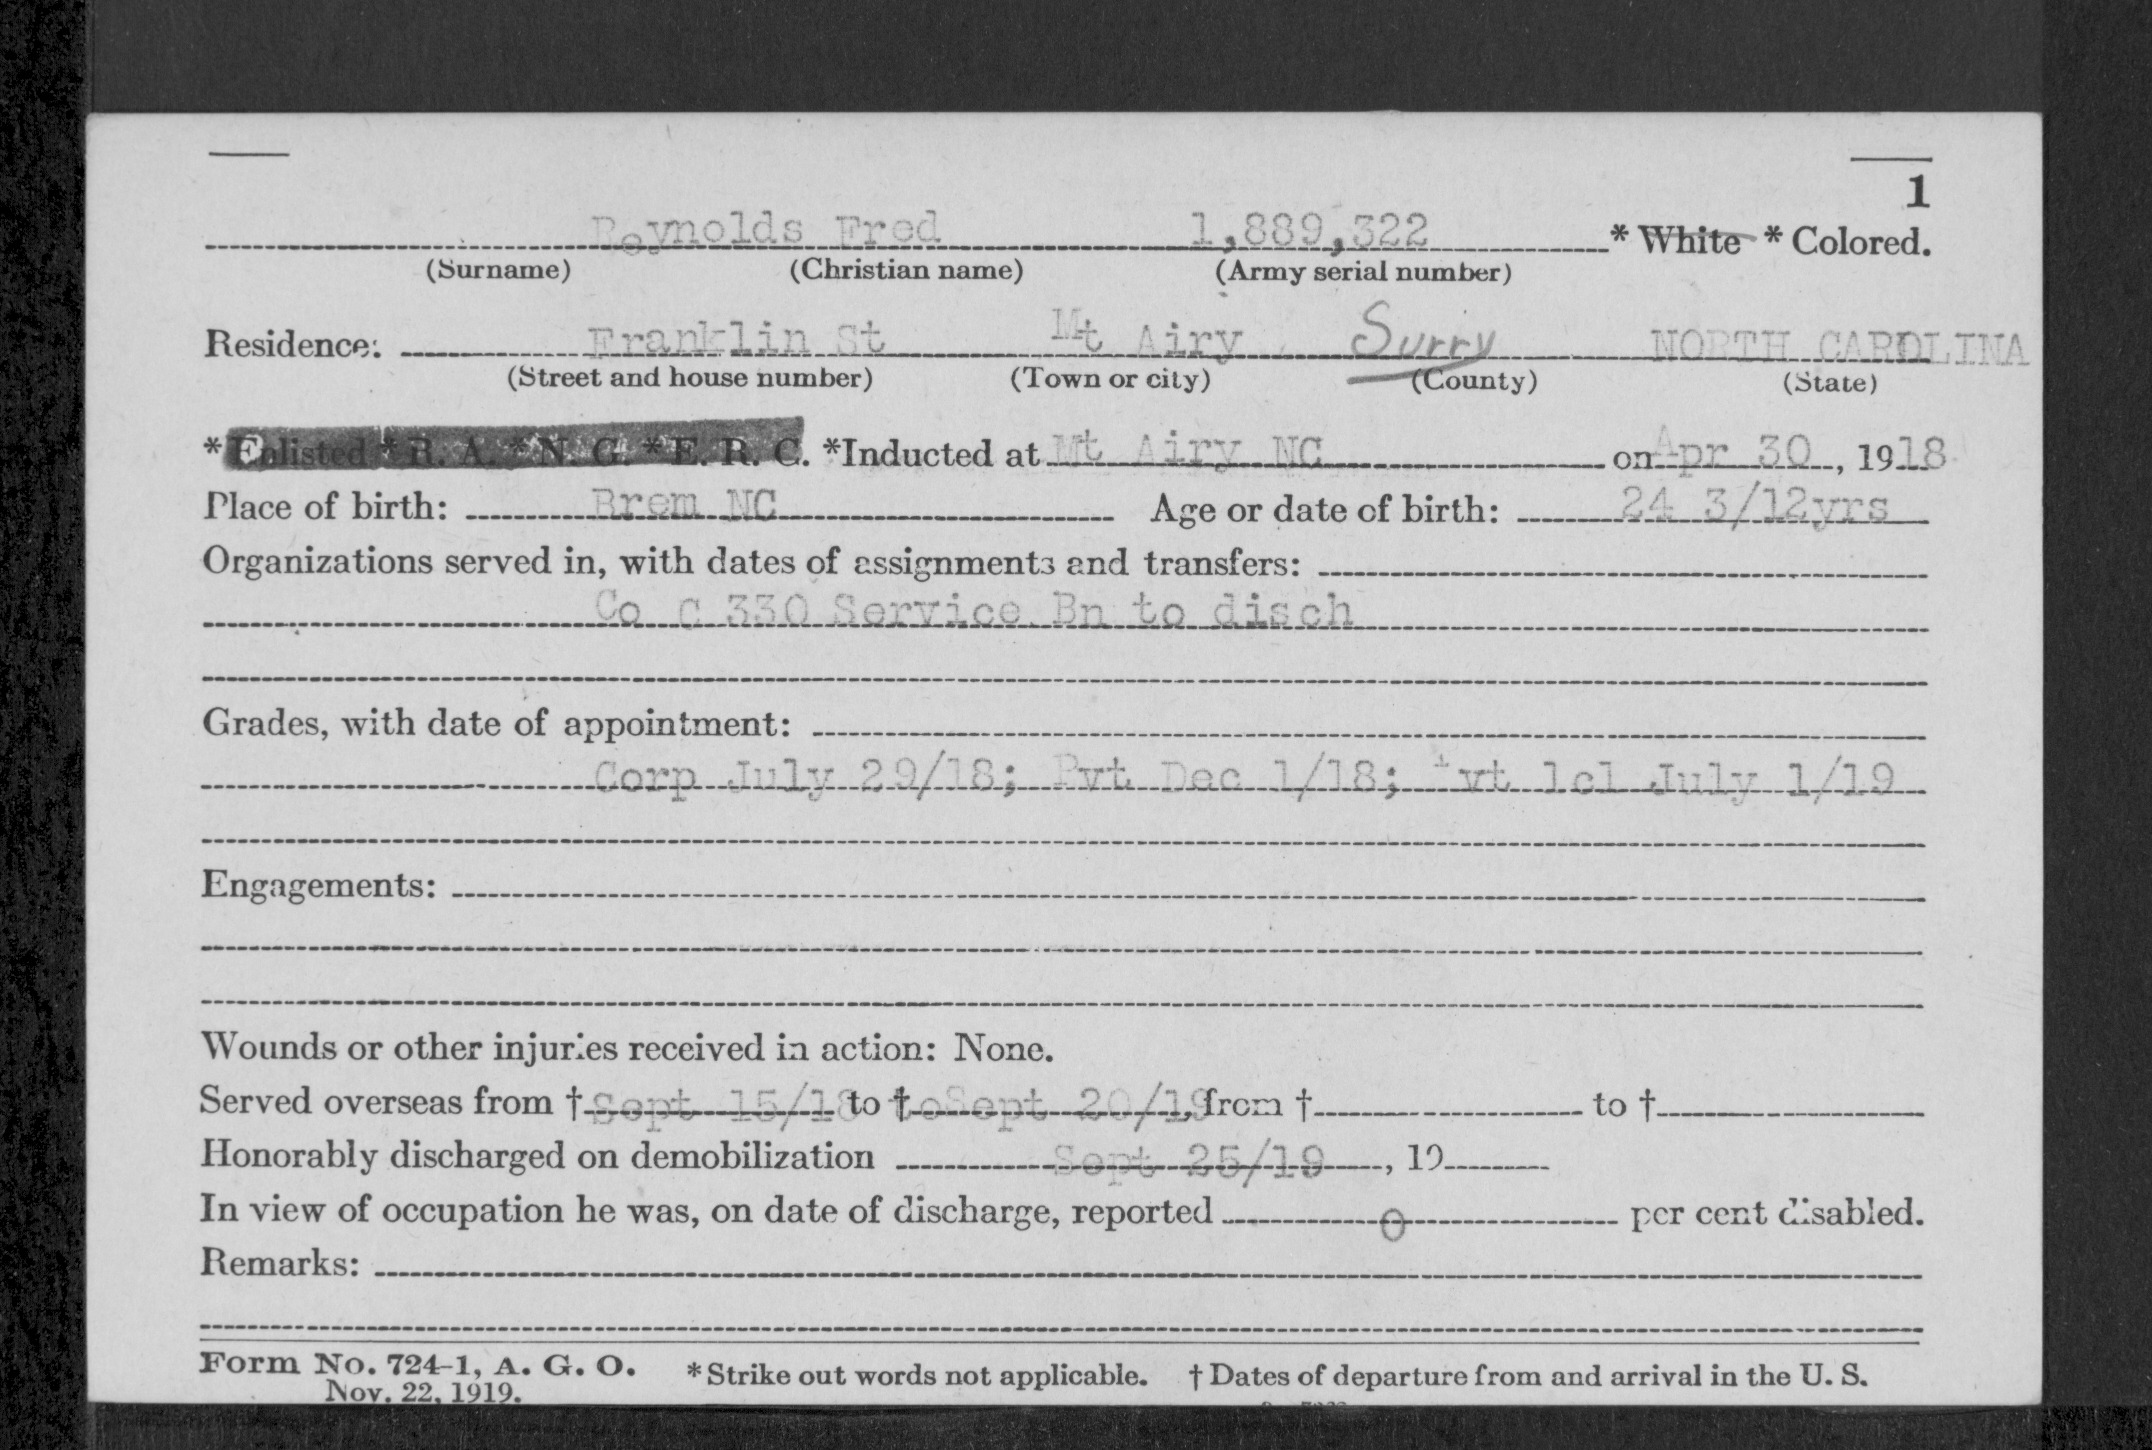 1
Reynolds Fred 1,889,322 * White * Colored.
(Surname) (Christian name) (Army serial number)
Residence: Franklin St Mt Airy Surry NORTH CAROLINA
(Street and house number) (Town or city) (County) (State)
* Enlisted * R. A. * N. G. * E. R. C. *Inducted at Mt Airy NC on Apr 30, 1918
Place of birth: Brem NC Age or date of birth: 24 3/12yrs
Organizations served in, with dates of assignments and transfers:
Co C 330 Service Bn to disch
Grades, with date of appointment:
Corp July 29/18; Pvt Dec 1/18; Pvt 1cl July 1/19
Engagements:
Wounds or other injuries received in action: None.
Served overseas from † Sept 15/18 to † toSept 20/19, from † to †
Honorably discharged on demobilization Sept 25/19, 19
In view of occupation he was, on date of discharge, reported 0 per cent disabled.
Remarks:
Form No. 724-1, A. G. O. * Strike out words not applicable. † Dates of departure from and arrival in the U. S.
Nov. 22, 1919.